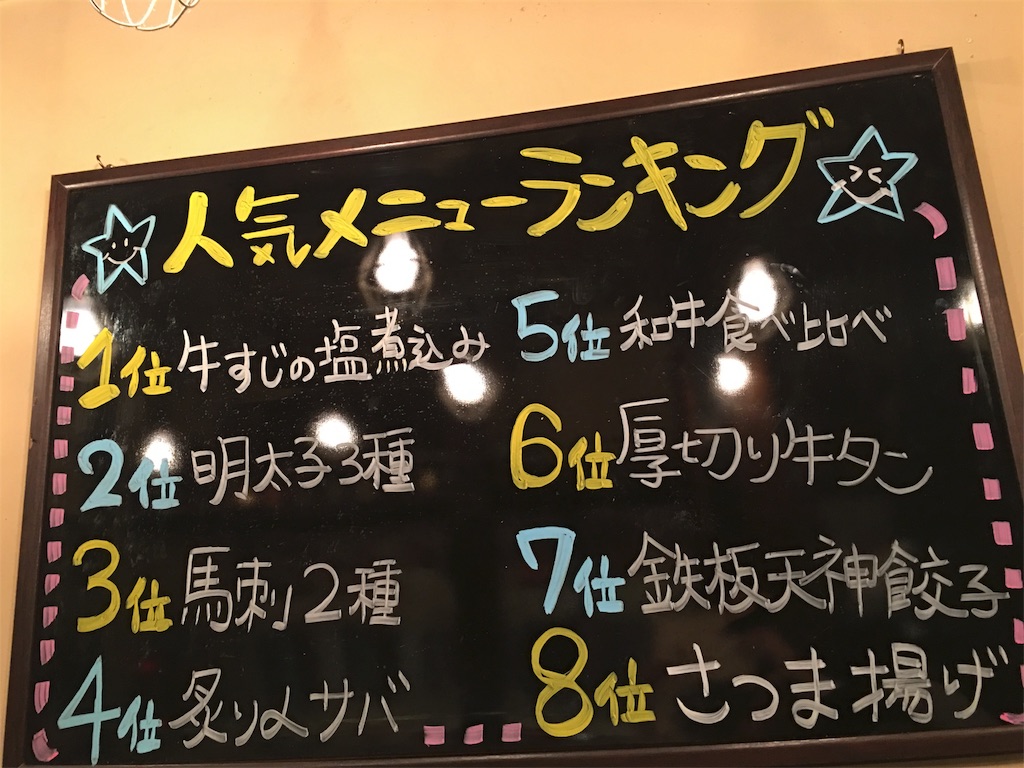 人気メニューランキング
1位 牛すじの塩煮込み
2位 明太子3種
3位 馬刺2種
4位 炙り〆サバ
5位 和牛食べ比べ
6位 厚切り牛タン
7位 鉄板天神餃子
8位 さつま揚げ